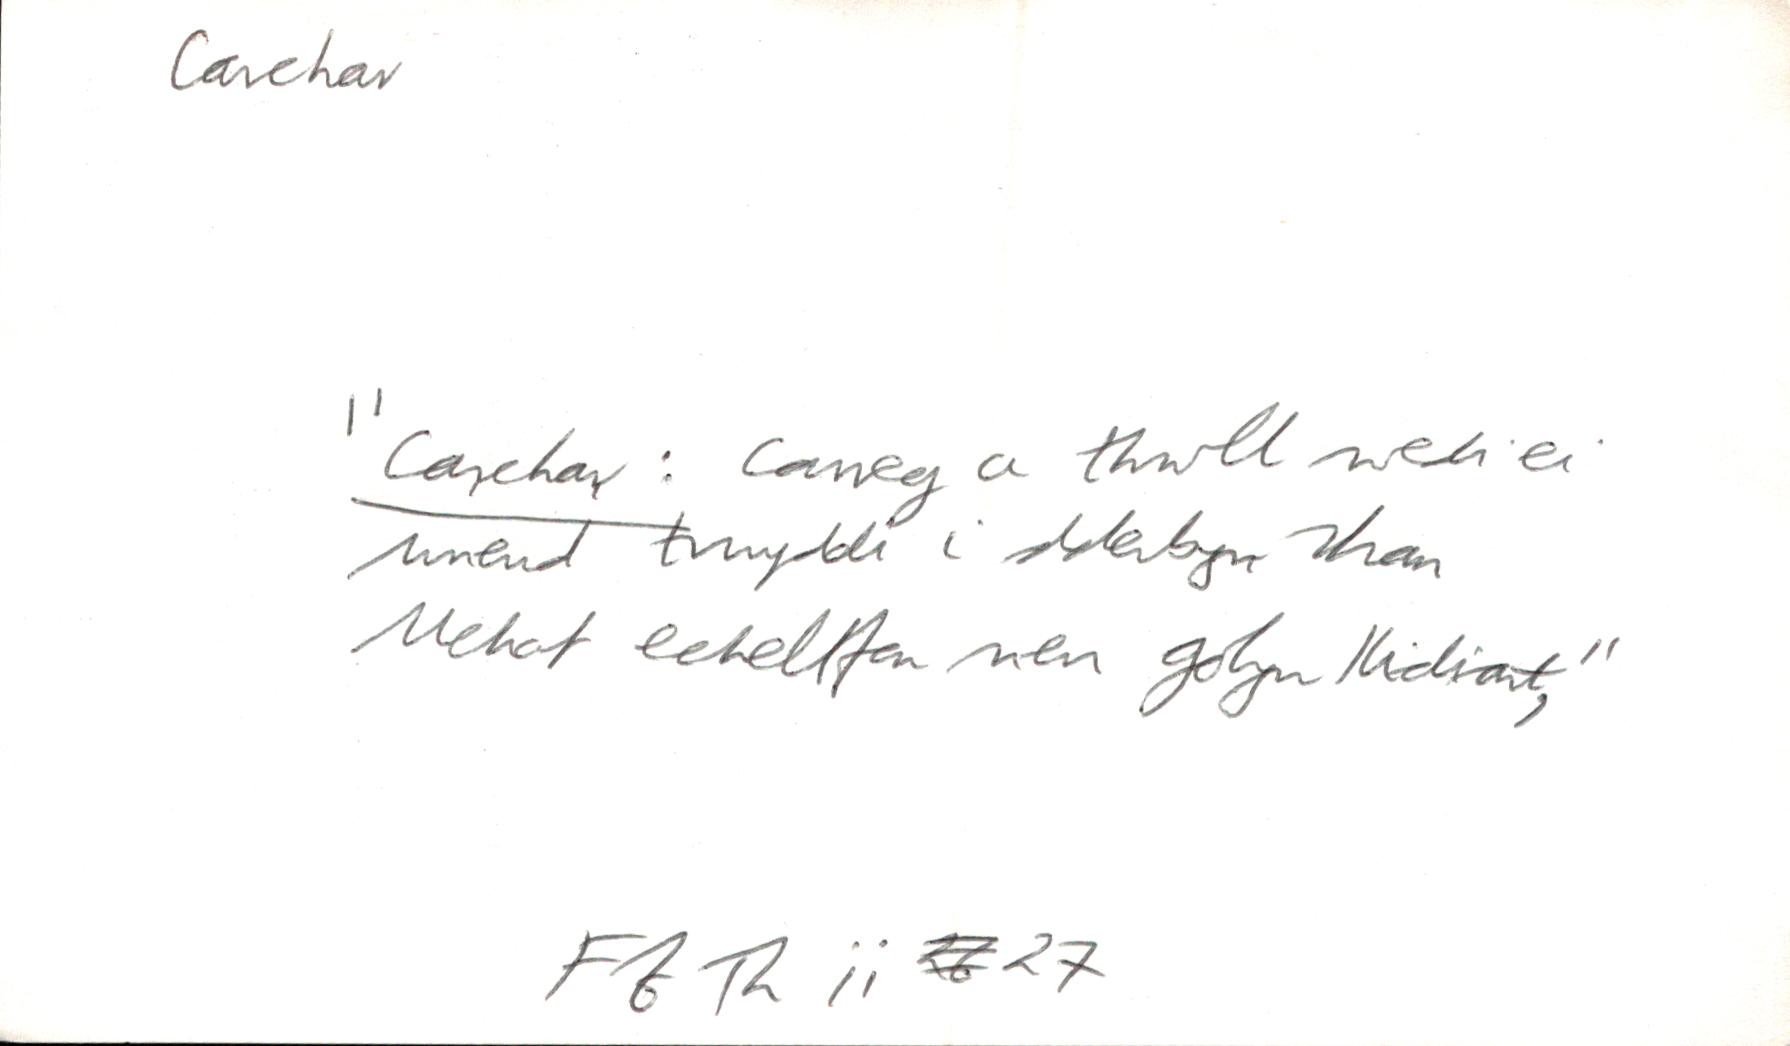 Carchar
"Carchar: Carreg a thwll wedi ei
wneud trwyddi i dderbyn rhan
uchaf echelffon neu golyn llidiart,"
Ff Th ii 27